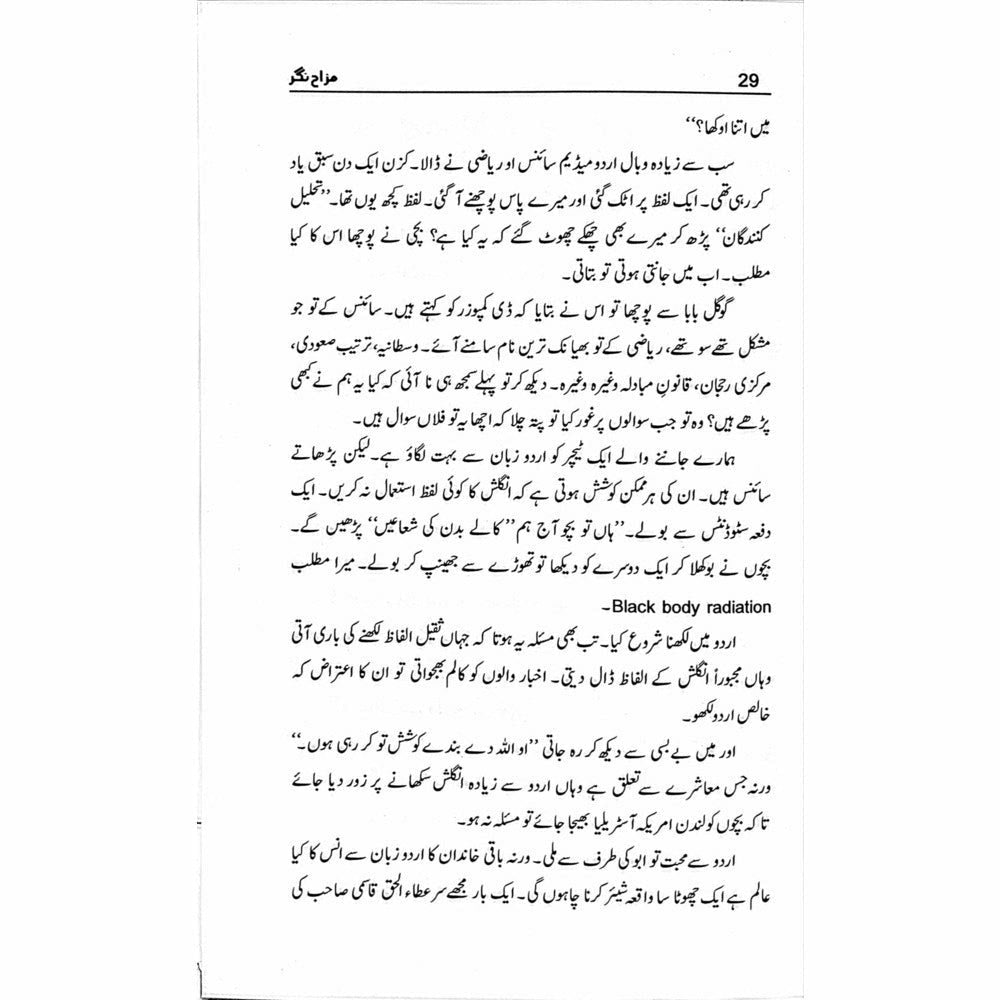 29
مزاح نگر
میں اتنا اوکھا؟‘‘
سب سے زیادہ وبال اردو میڈیم سائنس اور ریاضی نے ڈالا۔ کزن ایک دن سبق یاد
کر رہی تھی۔ ایک لفظ پر اٹک گئی اور میرے پاس پوچھنے آ گئی۔ لفظ کچھ یوں تھا۔ ’’تحلیل
کنندگان‘‘ پڑھ کر میرے بھی چھکے چھوٹ گئے کہ یہ کیا ہے؟ بچی نے پوچھا اس کا کیا
مطلب۔ اب میں جانتی ہوتی تو بتاتی۔
گوگل بابا سے پوچھا تو اس نے بتایا کہ ڈی کمپوزر کو کہتے ہیں۔ سائنس کے تو جو
مشکل تھے سو تھے، ریاضی کے تو بھیانک ترین نام سامنے آئے۔ وسطانیہ، ترتیب صعودی،
مرکزی رحجان، قانونِ مبادلہ وغیرہ وغیرہ۔ دیکھ کر تو پہلے سمجھ ہی نا آئی کہ کیا یہ ہم نے کبھی
پڑھے ہیں؟ وہ تو جب سوالوں پر غور کیا تو پتہ چلا کہ اچھا یہ تو فلاں سوال ہیں۔
ہمارے جاننے والے ایک ٹیچر کو اردو زبان سے بہت لگاؤ ہے۔ لیکن پڑھاتے
سائنس ہیں۔ ان کی ہر ممکن کوشش ہوتی ہے کہ انگلش کا کوئی لفظ استعمال نہ کریں۔ ایک
دفعہ سٹوڈنٹس سے بولے۔ ’’ہاں تو بچو آج ہم ’’کالے بدن کی شعاعیں‘‘ پڑھیں گے۔
بچوں نے بوکھلا کر ایک دوسرے کو دیکھا تو تھوڑے سے جھینپ کر بولے۔ میرا مطلب
Black body radiation۔
اردو میں لکھنا شروع کیا۔ تب بھی مسئلہ یہ ہوتا کہ جہاں ثقیل الفاظ لکھنے کی باری آتی
وہاں مجبوراً انگلش کے الفاظ ڈال دیتی۔ اخبار والوں کو کالم بھجواتی تو ان کا اعتراض کہ
خالص اردو لکھو۔
اور میں بے بسی سے دیکھ کر رہ جاتی ’’او اللہ دے بندے کوشش تو کر رہی ہوں۔‘‘
ورنہ جس معاشرے سے تعلق ہے وہاں اردو سے زیادہ انگلش سکھانے پر زور دیا جائے
تا کہ بچوں کو لندن امریکہ آسٹریلیا بھیجا جائے تو مسئلہ نہ ہو۔
اردو سے محبت تو ابو کی طرف سے ملی۔ ورنہ باقی خاندان کا اردو زبان سے انس کا کیا
عالم ہے ایک چھوٹا سا واقعہ شیئر کرنا چاہوں گی۔ ایک بار مجھے سر عطاء الحق قاسمی صاحب کی